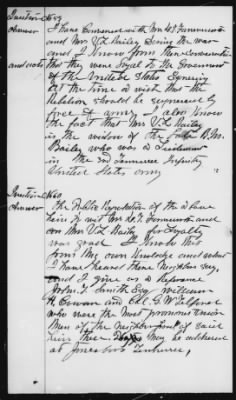 Question No 59
Answer I have Conversed with Mrs S.F.
and Mrs V.L. Bailey During the war
and I know from their Conversation
that they were Loyal to the Government
of the United States Expressing
at the time a wish that the
Rebelion should be supressed by
force of army I also Know
the fact that Mrs V.L. Bailey
is the widow of the late B.M.
Bailey who was a Lieutenant
in the 3rd Tennessee Infantry
United States army
Question No 60
Answer The Public Reputation of the above
heirs to wit Mrs S.F.
Mrs V.L. Bailey for Loyalty
was good I Know this
from my own Knowledge and
I have heard there Neighbors say,
and I give as a Referance
John F. Smith Esq William
H. Cowan and Col. G.W. Telford
who were the most prominant Union
Men of the Neighborhood of said
heirs they may be addressed
at Jonesboro Tennessee,